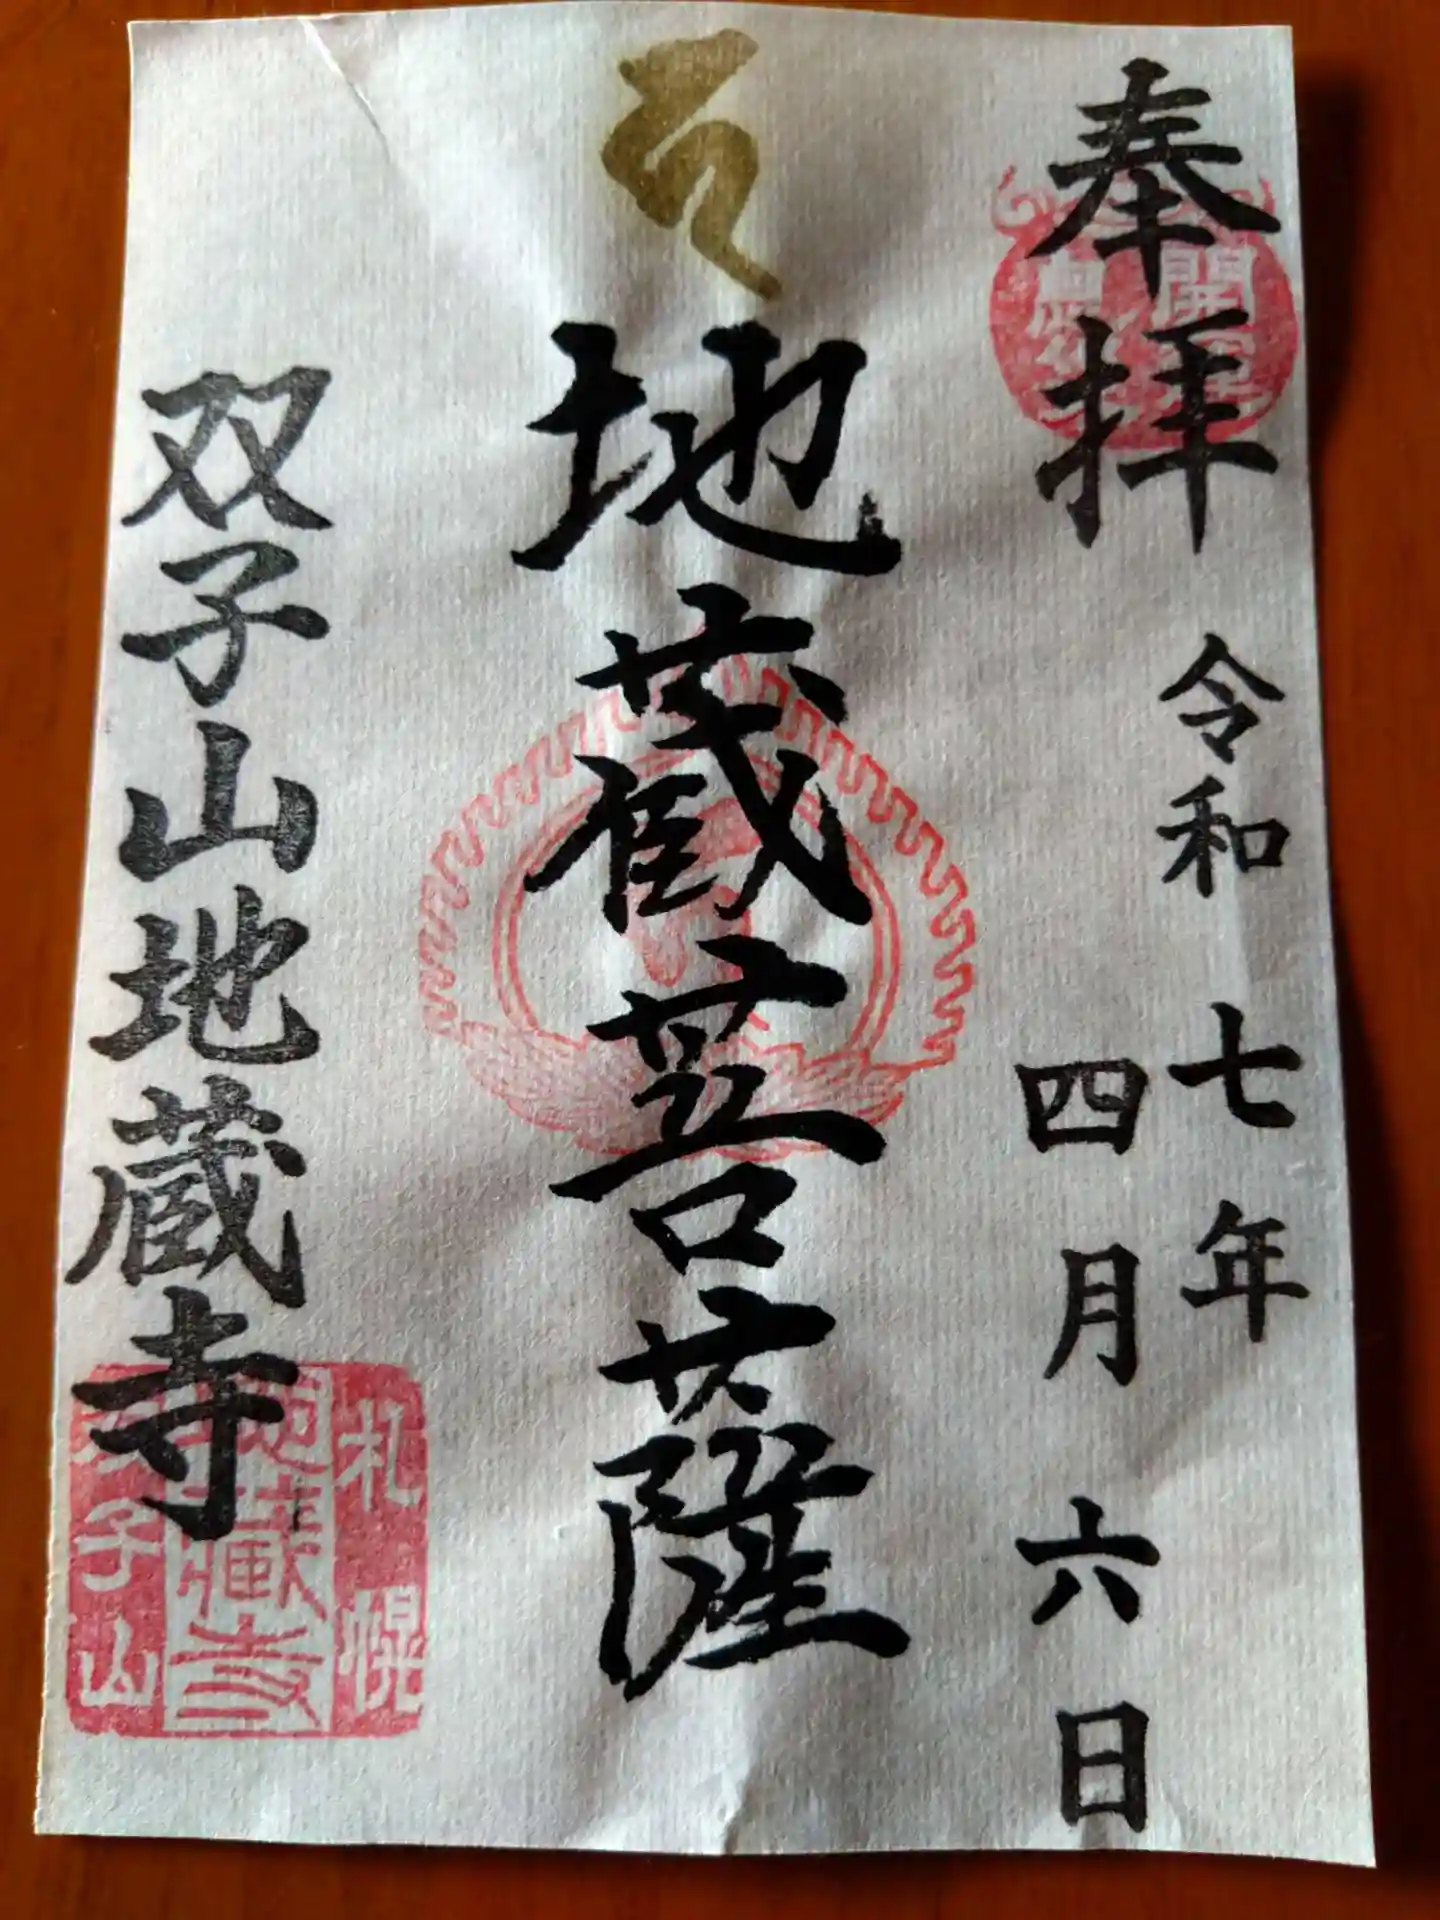 奉拝
令和七年
四月六日
地蔵菩薩
双子山地蔵寺
札幌
地藏寺
双子山